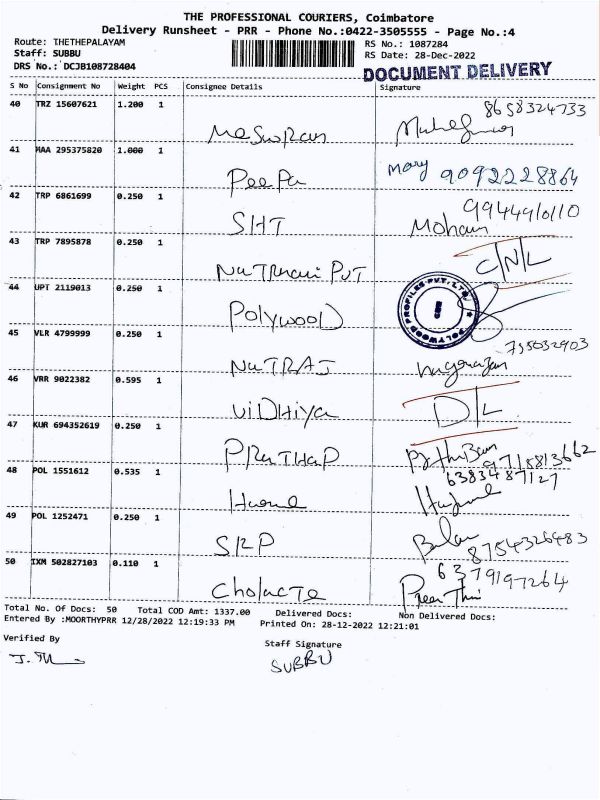 THE PROFESSIONAL COURIERS, Coimbatore
Delivery Runsheet - PRR - Phone No.:0422-3505555 - Page No.:4
Route: THETHEPALAYAM RS No.: 1087284
Staff: SUBBU RS Date: 28-Dec-2022
DRS No.: DCJB108728404 DOCUMENT DELIVERY
S No Consignment No Weight PCS Consignee Details Signature
40 TRZ 15607621 1.200 1 8658324733
41 MAA 295375820 1.000 1
Peepa Mary 9092228864
42 TRP 6861699 0.250 1
SHT Mohan 9944910110
43 TRP 7895878 0.250 1
C/N/L
44 UPT 2119013 0.250 1
Polywood POLYWOOD PROFILES PVT. LTD.
45 VLR 4799999 0.250 1
NaTRAJ
46 VRR 9022382 0.595 1
ViDHiya D/L
47 KUR 694352619 0.250 1
PRaTHaP 9715813662
48 POL 1551612 0.535 1 6383487127
49 POL 1252471 0.250 1
SRP Balan 8754326483
50 IXM 502827103 0.110 1 6379197264
Total No. Of Docs: 50 Total COD Amt: 1337.00 Delivered Docs: Non Delivered Docs:
Entered By :MOORTHYPRR 12/28/2022 12:19:33 PM Printed On: 28-12-2022 12:21:01
Verified By Staff Signature
SUBBU